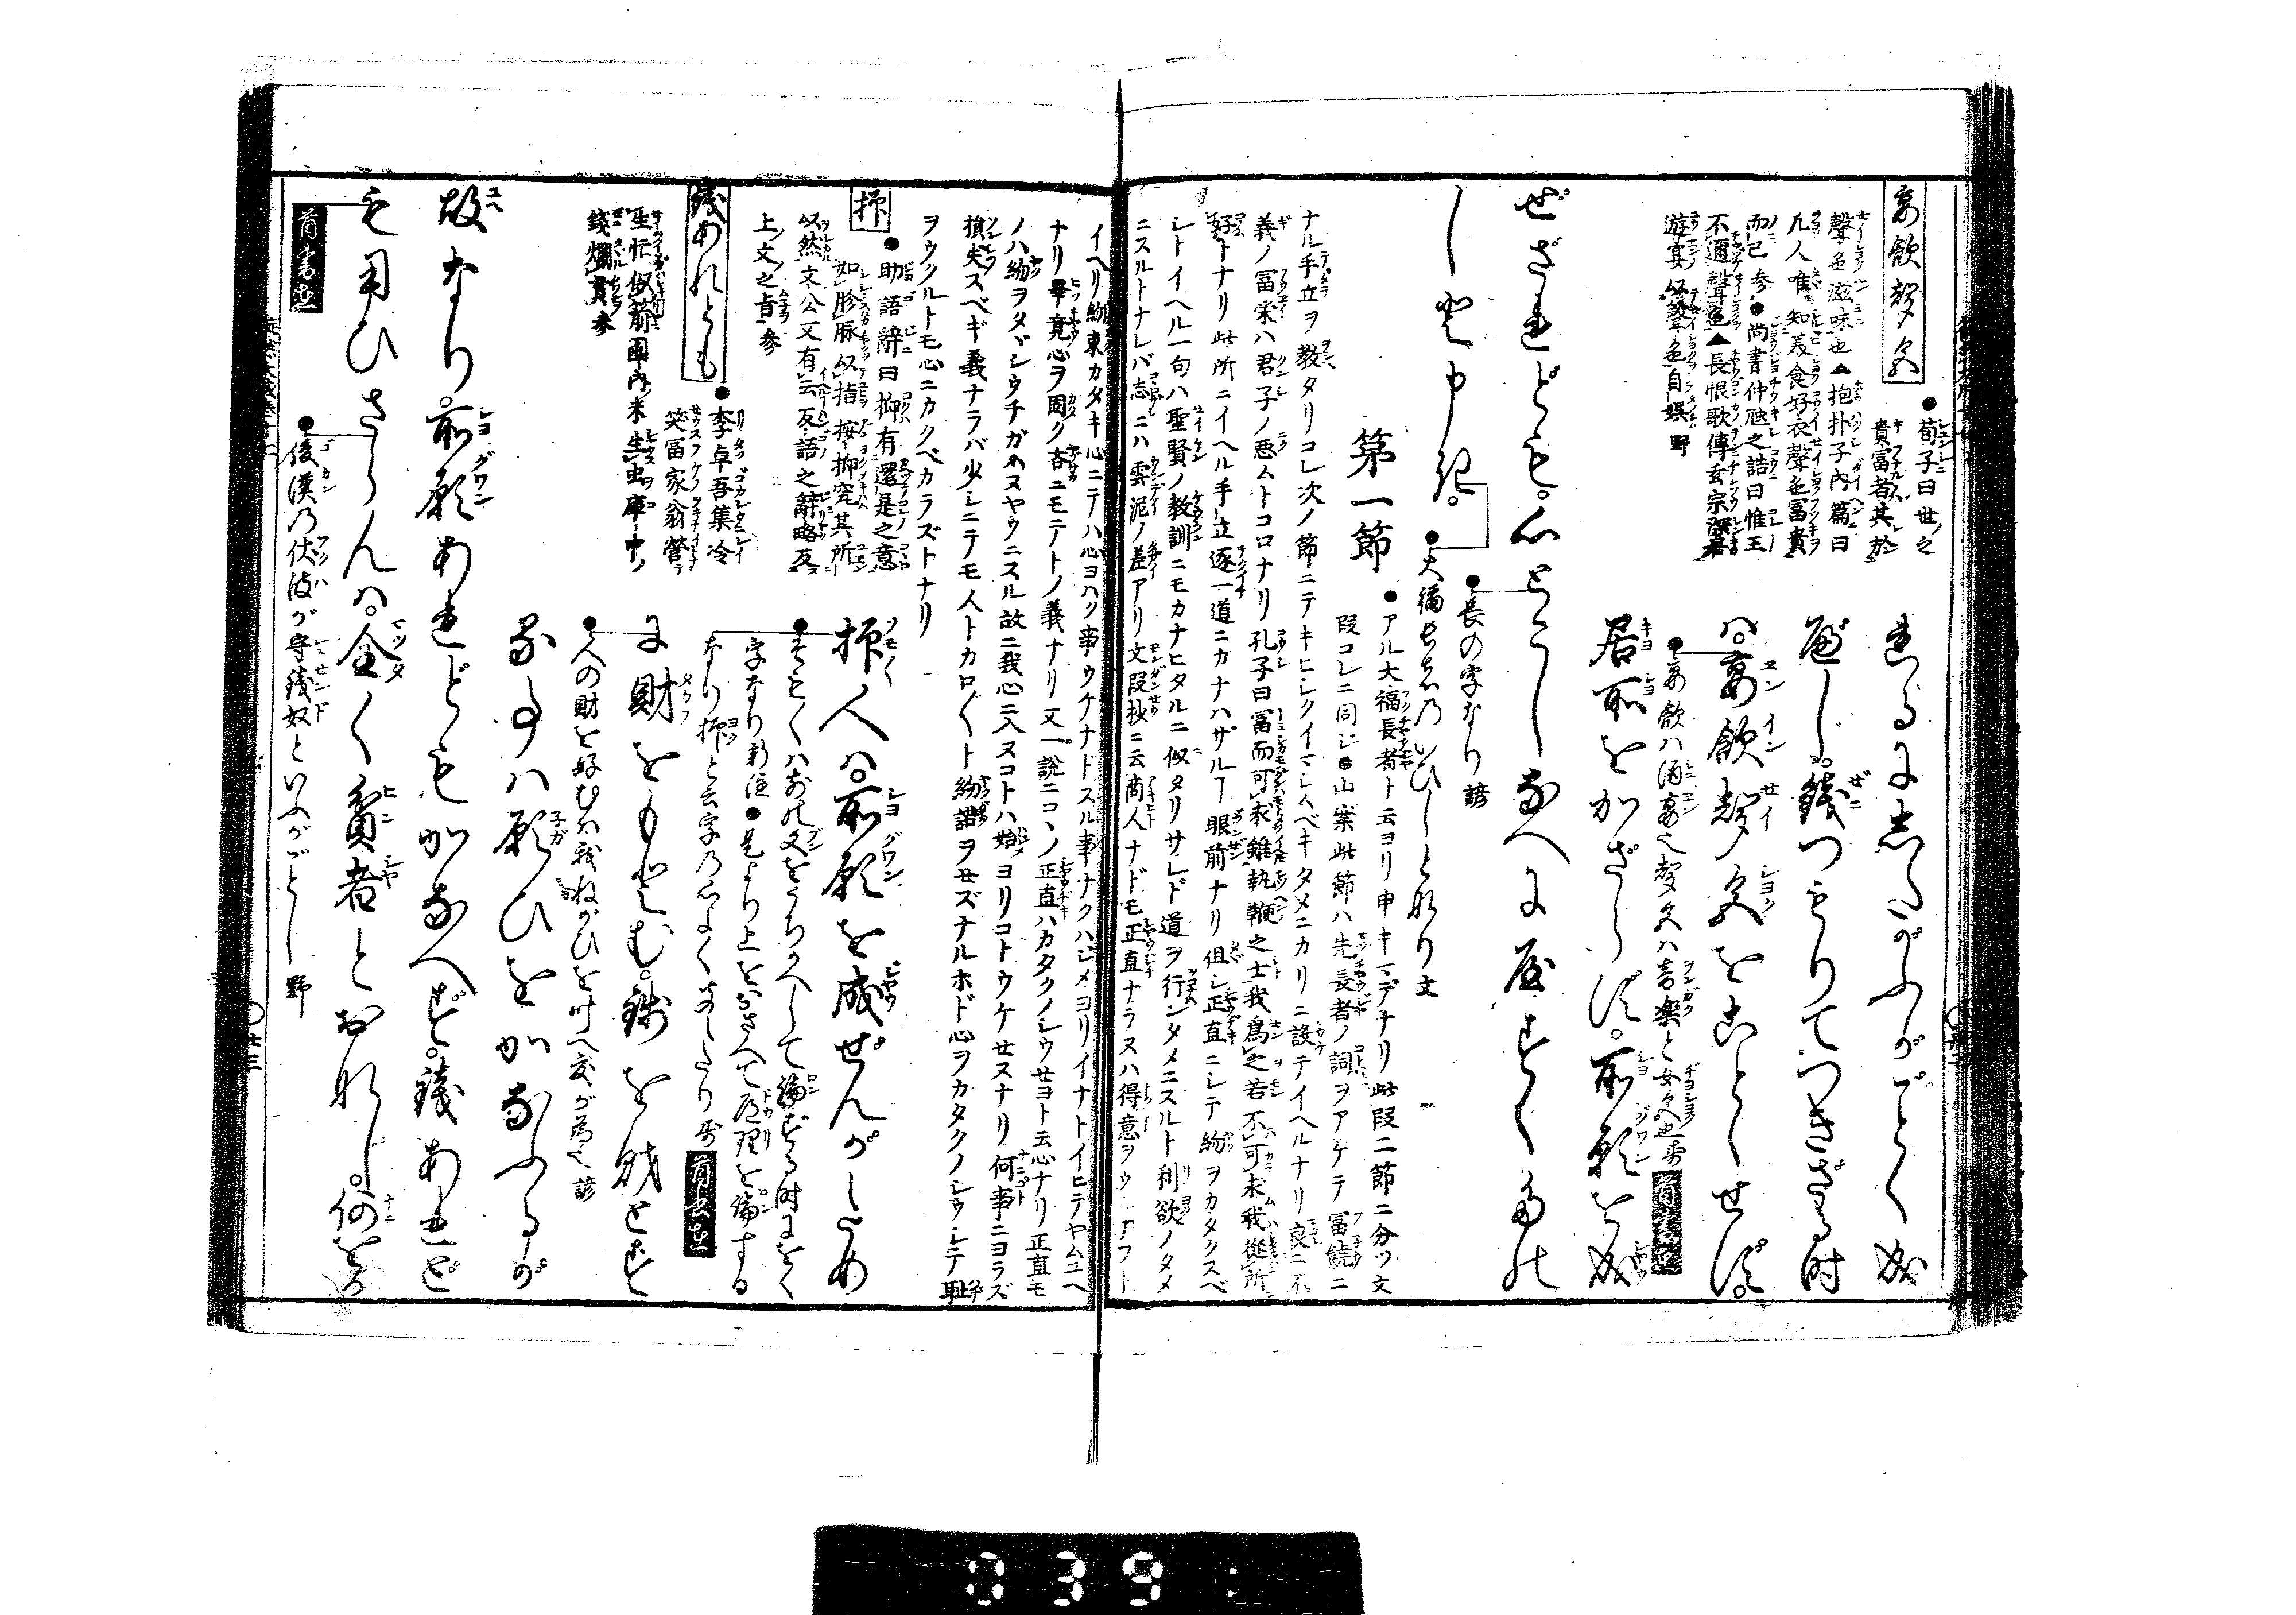 宴飲聲色
●荀子曰世ノ之
貴冨者其ノ於
聲色滋味也▲抱朴子内篇曰
凡人唯知美食好衣聲色冨貴
而已参●尚書仲虺之誥曰惟王
不邇聲色▲長恨歌傳玄宗深居
遊宴以聲色自娯 野
たるにしたがふがごとく成
べし。錢つもりてつきざる時
ハ。宴飲聲色をことゝせず。
●宴飲ハ酒宴也聲色ハ音楽と女色也
居所をかざらず。所願を成
ぜざれども。心とこしなへにやすくたのし
しと申き。
●長の字なり 諺
●大福長者のいひしと也 文
第一節
●アル大福長者ト云ヨリ申キマデナリ此段二節ニ分ツ文
段コレニ同ジ●山案此節ハ先長者ノ詞ヲアケテ冨饒ニ
ナル手立ヲ教タリコレ次ノ節ニテキビシクイマシムベキタメニカリニ設テイヘルナリ良ニ不
義ノ冨栄ハ君子ノ悪ムトコロナリ孔子曰冨而可求雖執鞭之士我為之若不可求我從所
好トナリ此所ニイヘル手立逐一道ニカナハザルヿ眼前ナリ但シ正直ニシテ約ヲカタクスベ
シトイヘル一句ハ聖賢ノ教訓ニモカナヒタルニ似タリサレド道ヲ行ンタメニスルト利欲ノタメ
ニスルトナレバ志ニハ雲泥ノ差アリ文段抄ニ云商人ナドモ正直ナラヌハ得意ヲウ
イヘリ約束カタキ心ニテハ心ヨハク事ウケナドスル事ナクハジメヨリイナトイヒテヤムユヘ
ナリ畢竟心ヲ固ク吝ニモテトノ義ナリ又一説ニコヽノ正直ハカタクノシウセヨト云心ナリ正直モ
ノハ約ヲタヾシウチガヘヌヤウニスル故ニ我心ニ入ヌコトハ始ヨリコトウケセヌナリ何事ニヨラズ
損失スベギ義ナラバ少シニテモ人トカロ〴〵ト約諾ヲセズナルホド心ヲカタクノシウシテ耻
ヲウクルトモ心ニカクベカラズトナリ
抑
●助語辭曰抑有還是之意
如胗脉以指按抑究其所
以然文公又有云反語之辭略反
上文之旨 参
抑人ハ。所願を成ぜんがため
●そも〳〵ハ前の文をうちかへして論ずる時にをく
字なり
なり抑と云字の心よく
錢あれとも
●李卓吾集冷
笑冨家翁營
生忙似箭囷内米生虫庫中
錢爛貫 参
に財をもとむ。錢を財とす
●人の財を好むハ我ねがひを叶へ度が為也 諺
る事ハ願ひをかなふるが
故なり。所願あれどもかなへず。錢あれど
も用ひざらんハ。全く貧者とおなじ。何をか
首書
●後漢の伏波が守錢奴といふがごとし 野
〇廿三
039